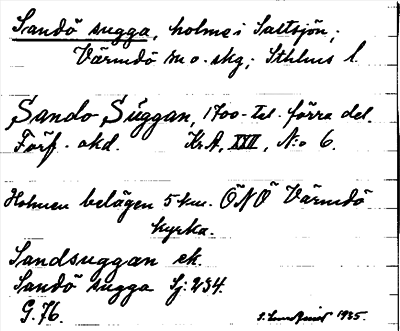 Sandö sugga, holme i Saltsjön;
Värmdö sn o. skg; Sthlms l.
Sando Suggan, 1700-tal. förra del.
Förf. okd. Kr.A, XXII, N:o 6.
Holmen belägen 5 km. ÖNÖ Värmdö
kyrka.
Sandsuggan ek.
Sandö sugga Sj: 234.
G. 76.
1935.